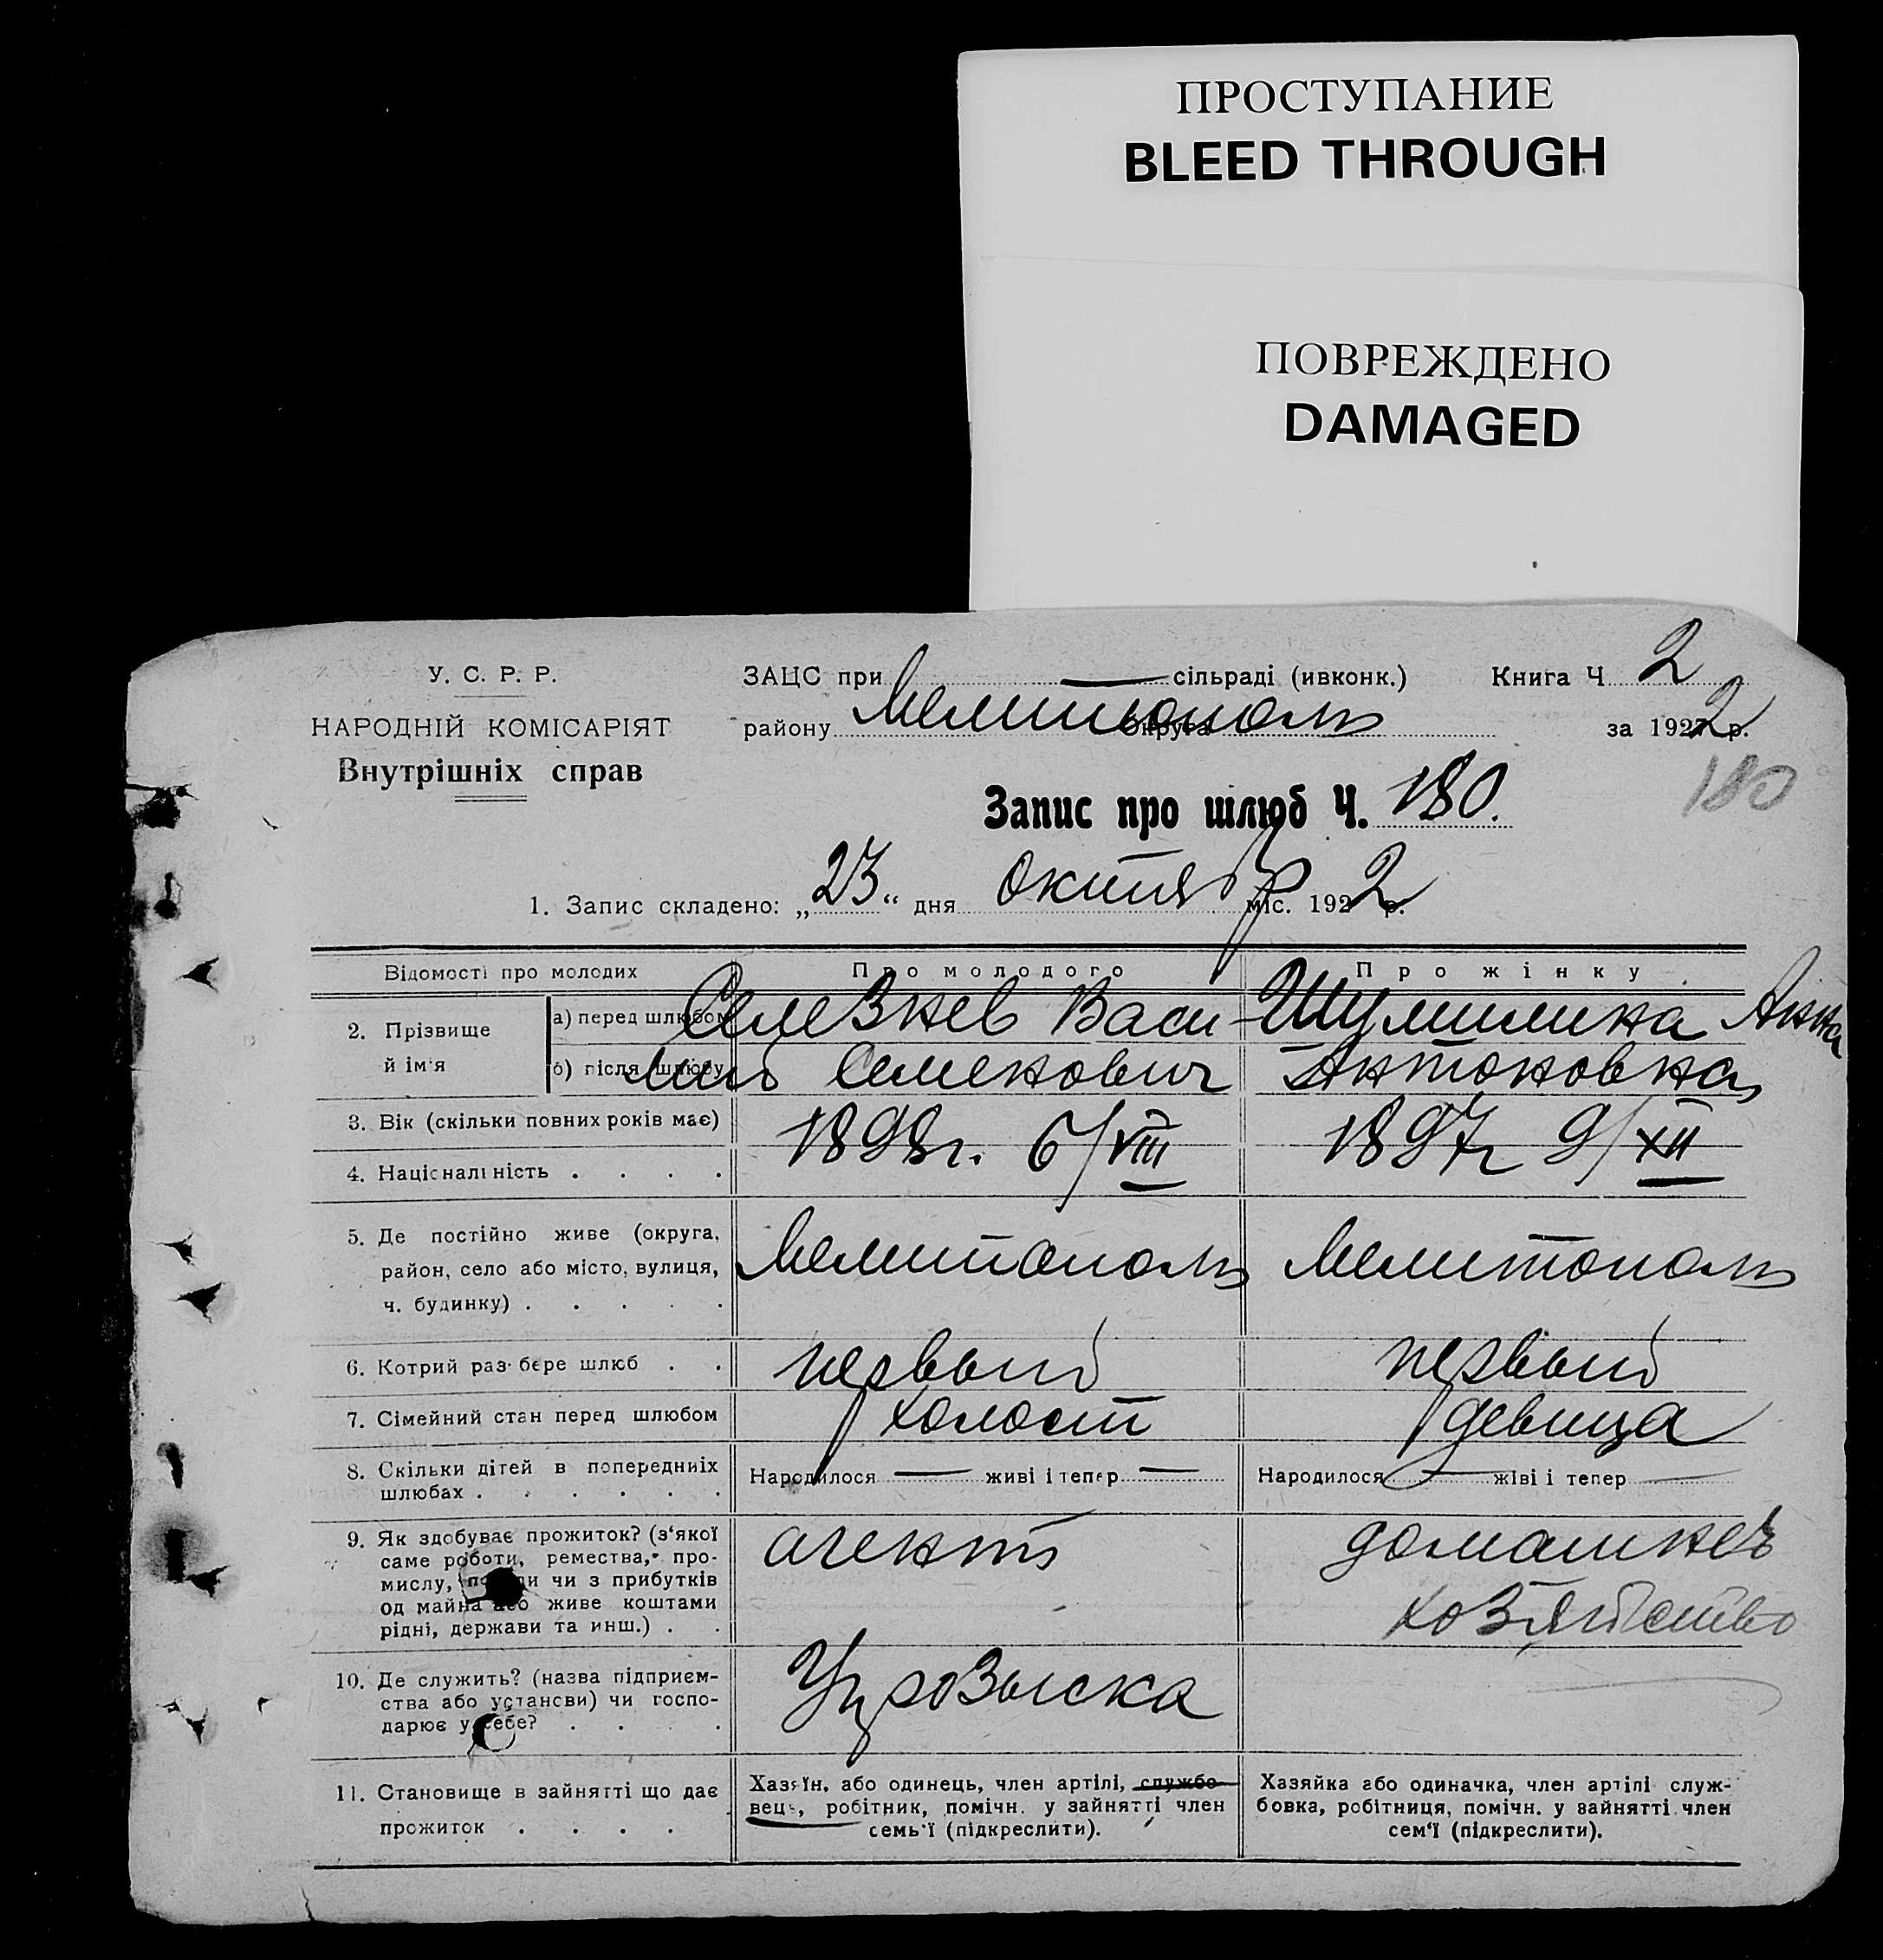 ПРОСТУПАНИЕ
BLEED THROUGH
ПОВРЕЖДЕНО
DAMAGED
У. С. Р. Р.
НАРОДНІЙ КОМІСАРІЯТ
Внутрішніх справ
ЗАЦС при — сільраді (ивконк.) Книга Ч 2
району Мелитополь Округа за 1922 р.
180
Запис про шлюб Ч. 180.
1. Запис складено: „23“ дня октяб міс. 1922 р.
Відомості про молодих Про молодого Про жінку
2. Прізвище й ім'я
а) перед шлюбом Селезнев Васи- Шумилина Анна
б) після шлюбу лий Семенович Антоновна
3. Вік (скільки повних років має) 1898г. 6/VIII 1897г 9/XII
4. Національність . . . .
5. Де постійно живе (округа, Мелитополь Мелитополь
район, село або місто, вулиця,
ч. будинку) . . . . .
6. Котрий раз бере шлюб . . первый первый
7. Сімейний стан перед шлюбом холост девица
8. Скільки дітей в попередниіх Народилося — живі і тепер — Народилося — живі і тепер —
шлюбах . . . . . .
9. Як здобуває прожиток? (з'якої агент домашнее
саме роботи, ремества, про-
мислу, посади чи з прибутків хозяйство
од майна або живе коштами
рідні, держави та инш.) . .
10. Де служить? (назва підприєм- Угрозыска
ства або установи) чи госпо-
дарює у себе? . . . .
11. Становище в зайнятті що дає
прожиток . . . .
Хазяїн, або одинець, член артілі, службо-
вець, робітник, помічн. у зайнятті член
семь'ї (підкреслити).
Хазяйка або одиначка, член артілі служ-
бовка, робітниця, помічн. у зайнятті член
сем'ї (підкреслити).